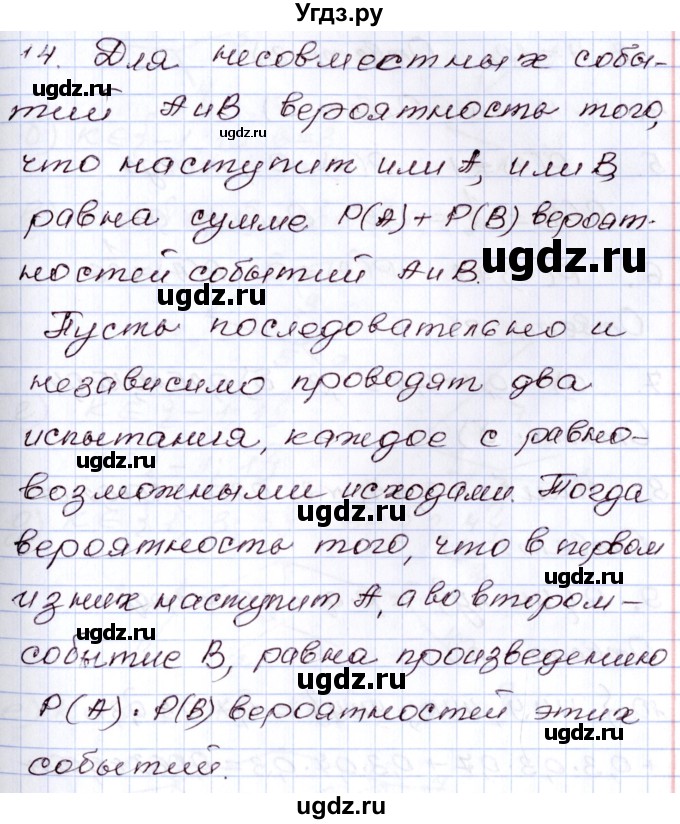 Угдз.ру
14. Для несовместных собы-
тий А и В вероятность того,
что наступит или А, или В,
равна сумме P(A) + P(B) вероят-
ностей событий А и В.
Пусть последовательно и
независимо проводят два
испытания, каждое с равно-
возможными исходами. Тогда
вероятность того, что в первом
из них наступит А, а во втором –
событие В, равна произведению
P(A) · P(B) вероятностей этих
событий.
ugdz.ru
ugdz.ru
ugdz.ru
ugdz.ru
ugdz.ru
ugdz.ru
ugdz.ru
ugdz.ru
ugdz.ru
ugdz.ru
ugdz.ru
ugdz.ru
ugdz.ru